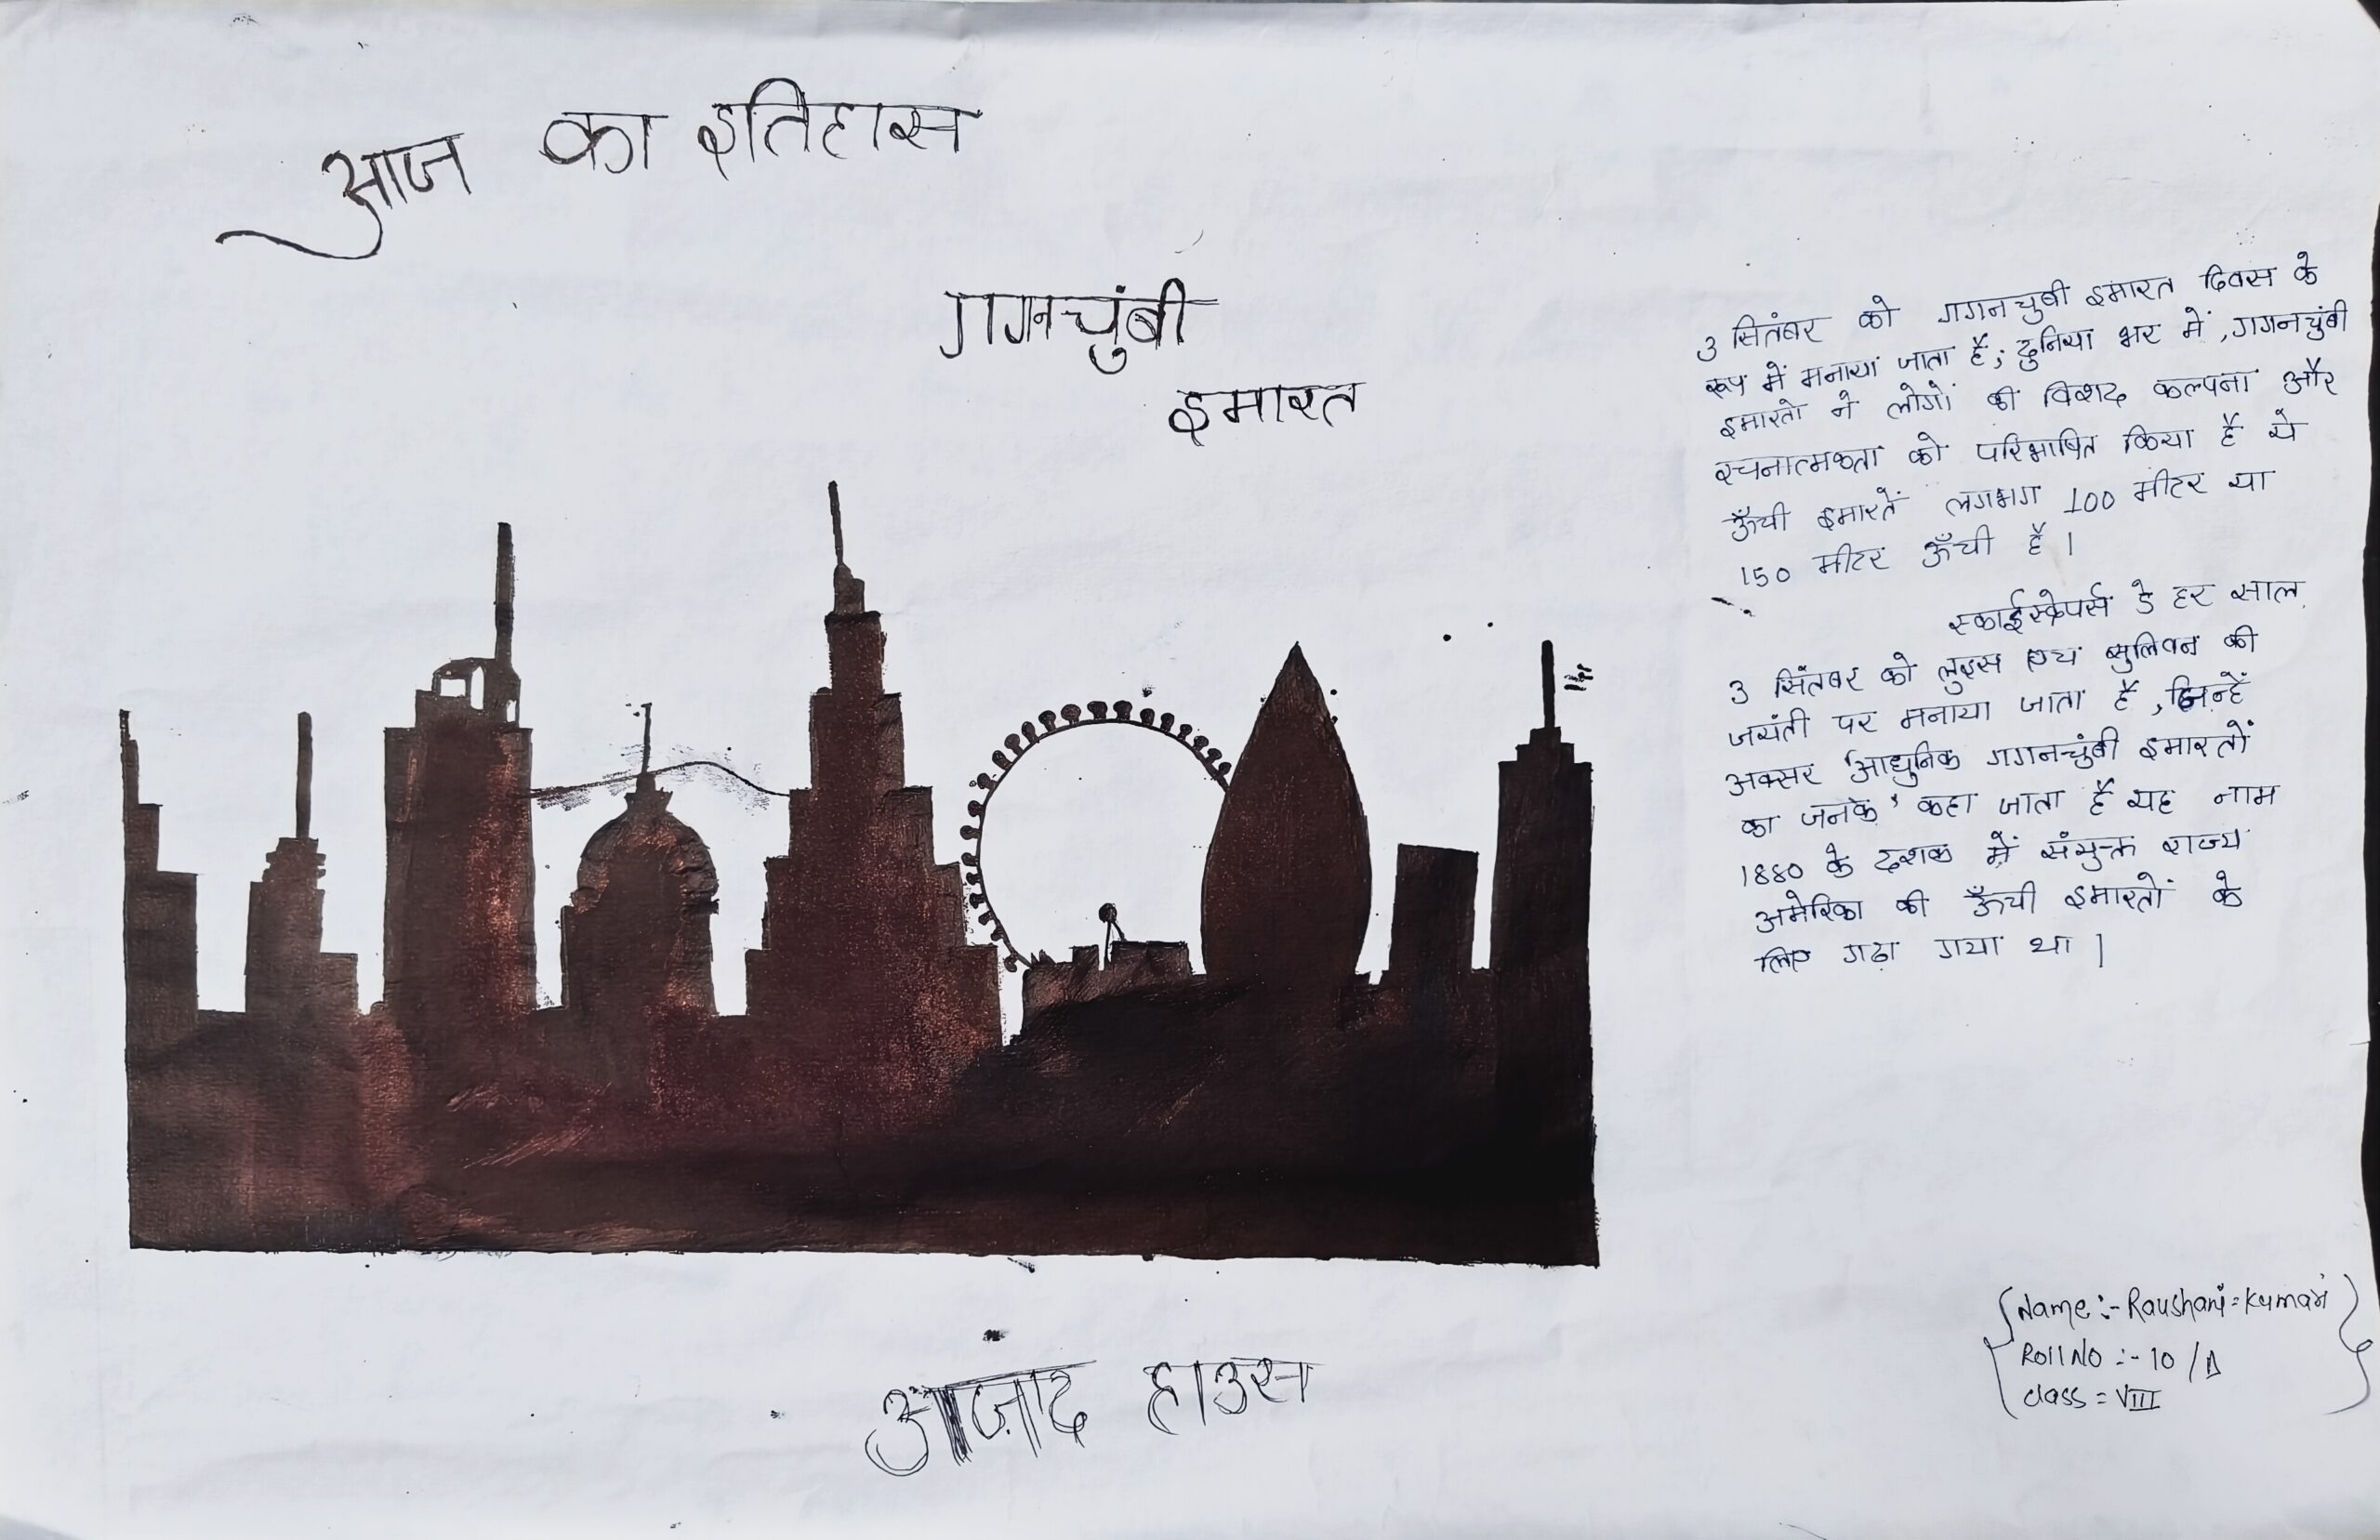 आज का इतिहास
गगनचुंबी
इमारत
3 सितंबर को गगनचुबी इमारत दिवस के
रूप में मनाया जाता है; दुनिया भर में, गगनचुंबी
इमारतो ने लोगों की विशद कल्पना और
रचनात्मकता को परिभाषित किया है ये
ऊँची इमारतें लगभग 100 मीटर या
150 मीटर ऊँची है।
स्काईस्क्रेपर्स डे हर साल
3 सितंबर को लुइस एच सुलिवन की
जयंती पर मनाया जाता है, जिन्हें
अक्सर 'आधुनिक गगनचुंबी इमारतों
का जनक' कहा जाता है यह नाम
1880 के दशक में संयुक्त राज्य
अमेरिका की ऊँची इमारतों के
लिए गढ़ा गया था।
Name :- Raushani = Kumari
Roll NO :- 10 / A
class = VIII
आज़ाद हाउस